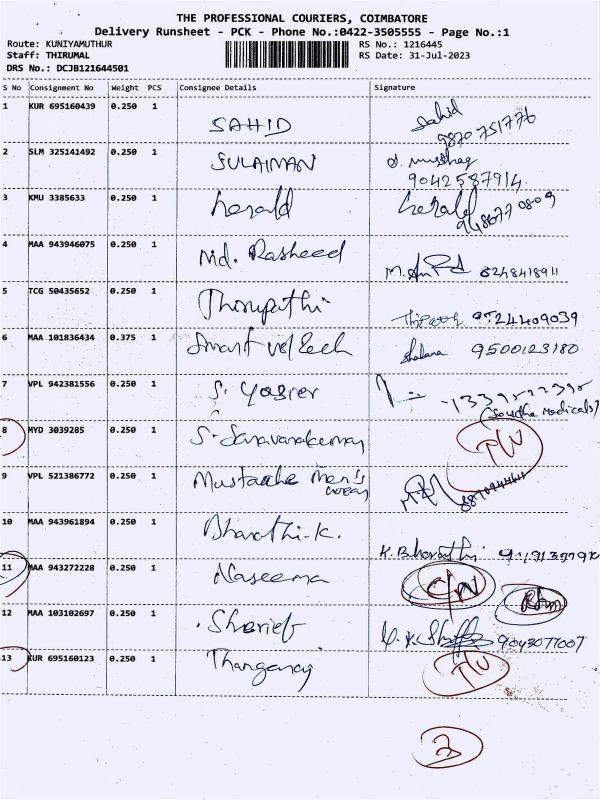 THE PROFESSIONAL COURIERS, COIMBATORE
Delivery Runsheet - PCK - Phone No.:0422-3505555 - Page No.:1
Route: KUNIYAMUTHUR RS No.: 1216445
Staff: THIRUMAL RS Date: 31-Jul-2023
DRS No.: DCJB121644501
S No Consignment No Weight PCS Consignee Details Signature
1 KUR 695160439 0.250 1 SAHID Sahid
9870751776
2 SLM 325141492 0.250 1 SULAIMAN
9042587914
3 KMU 3385633 0.250 1 herald herald
9486770809
4 MAA 943946075 0.250 1 Md. Rasheed 8248418911
5 TCG 50435652 0.250 1 Thirupathi
6 MAA 101836434 0.375 1 Smart 9500123180
7 VPL 942381556 0.250 1 S. Yasier
8 MYD 3039285 0.250 1 S. Saravanakumar
9 VPL 521386772 0.250 1 Mustache Men's
wear
10 MAA 943961894 0.250 1 Bharathi.K. K. Bharathi
11 MAA 943272228 0.250 1 Naseema
12 MAA 103102697 0.250 1 Sherief 9043077007
13 KUR 695160123 0.250 1 Thangaraj